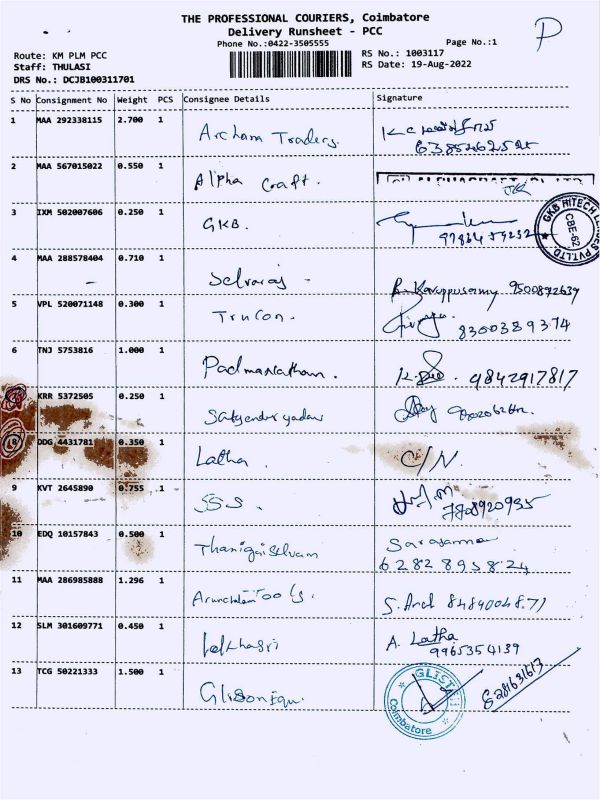 THE PROFESSIONAL COURIERS, Coimbatore
Delivery Runsheet - PCC
P
Phone No.:0422-3505555
Page No.:1
Route: KM PLM PCC
RS No.: 1003117
Staff: THULASI
RS Date: 19-Aug-2022
DRS No.: DCJB100311701
S No Consignment No Weight PCS Consignee Details Signature
1 MAA 292338115 2.700 1 Archam Traders.
2 MAA 567015022 0.550 1 Alpha Craft.
3 IXM 502007606 0.250 1 GKB. GKB HITECH LENSES PVT.LTD. CBE-62
4 MAA 288578404 0.710 1 Selvaraj - Karuppusamy
5 VPL 520071148 0.300 1 Trucon. 8300389374
6 TNJ 5753816 1.000 1 Padmanatham. 9842917817
KRR 5372505 0.250 1 Satyender yadav
8 DDG 4431781 0.350 1 Latha. C/N
9 KVT 2645890 0.755 1 SSS. 7708920935
10 EDQ 10157843 0.500 1 Thanigaiselvam
6282895824
11 MAA 286985888 1.296 1 Arunchalam Tools. S. Arul
12 SLM 301609771 0.450 1 A. Latha
9965354139
13 TCG 50221333 1.500 1 Coimbatore